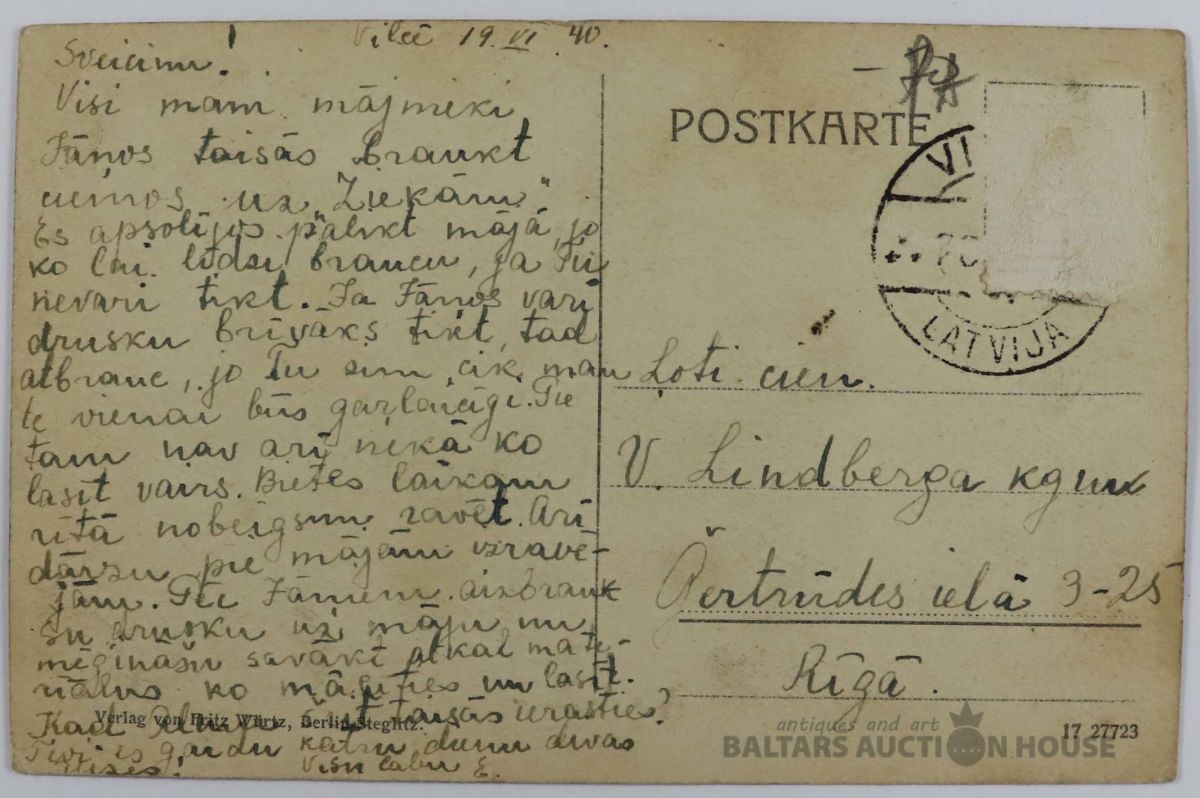 Vilcē 19 VI 40.
Sveicinu!
Visi mani mājnieki
Jāņos taisās braukt
ciemos uz "Ziekām".
Es apsolījos palikt mājā, jo
ko lai līdzi braucu, ja Tu
nevari tikt. Ja Jāņos vari
drusku brīvāks tikt, tad
atbrauc, jo Tu zini, cik man
te vienai būs garlaicīgi. Pie
tam nav arī nekā ko
lasīt vairs. Bietes laikam
rītā nobeigsim ravēt. Arī
dārzu pie mājām izravē-
jām. Pēc Jāņiem aizbrauk
šu drusku uz māju un
mēģināšu savākt atkal mate-
riālus ko mācīties un lasīt.
Kad taisās ierasties?
Tevi es gaidu katru dienu divas
reizes. Visu labu E.
Verlag von Fritz Würtz, Berlin-Steglitz.
POSTKARTE
VI
LATVIJA
Ļoti cien.
V. Lindberga kgm
Ģertrūdes ielā 3-25
Rīgā.
17 27723
antiques and art
BALTARS AUCTION HOUSE